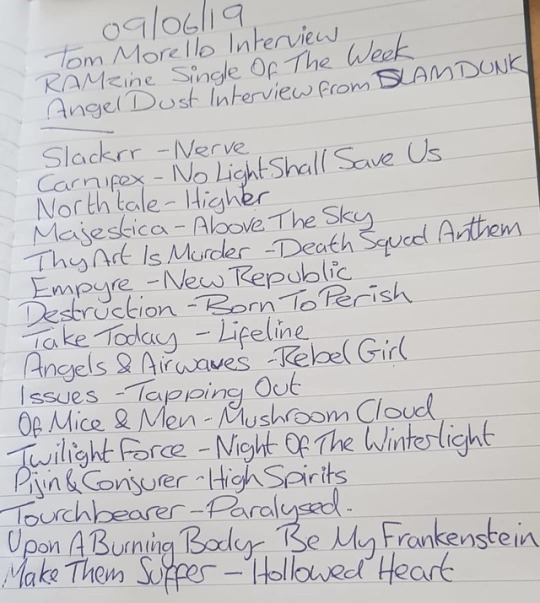 09/06/19
Tom Morello Interview
RAMzine Single Of The Week
Angel Dust Interview from SLAMDUNK
Slackrr - Nerve
Carnifex - No Light Shall Save Us
Northtale - Higher
Majestica - Above The Sky
Thy Art Is Murder - Death Squad Anthem
Empyre - New Republic
Destruction - Born To Perish
Take Today - Lifeline
Angels & Airwaves - Rebel Girl
Issues - Tapping Out
Of Mice & Men - Mushroom Cloud
Twilight Force - Night Of The Winterlight
Pijn & Conjurer - High Spirits
Tourchbearer - Paralysed.
Upon A Burning Body - Be My Frankenstein
Make Them Suffer - Hollowed Heart